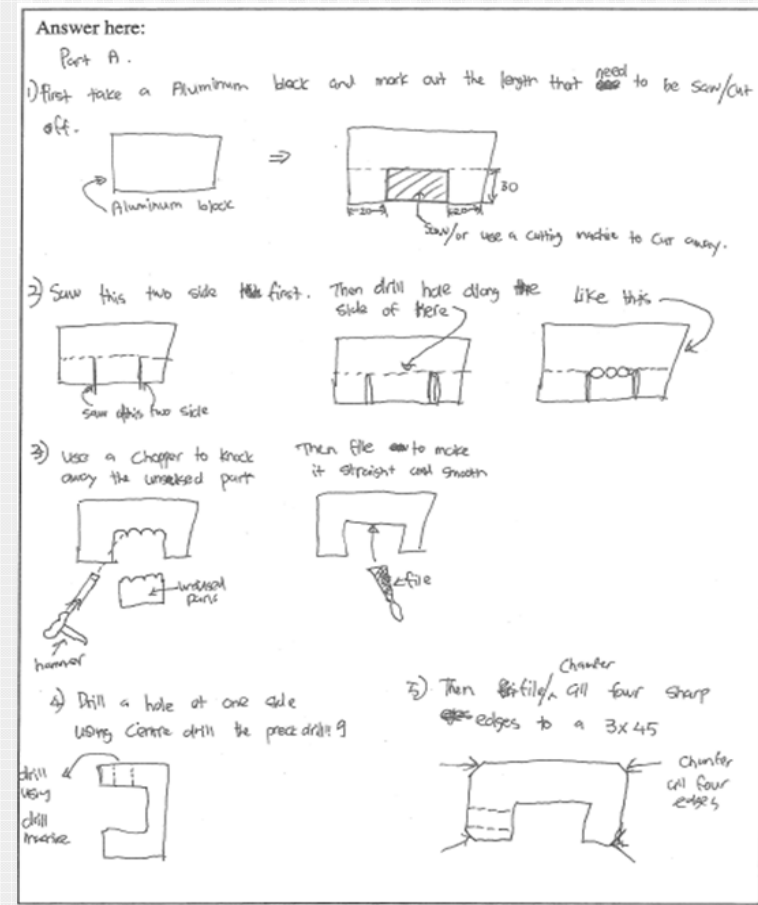 Answer here:
Part A.
1) First take a Aluminum block and mark out the length that need to be saw/cut
off.
Aluminum block
⇒
30
20
20
Saw/or use a cutting machine to cut away.
2) Saw this two side first. Then drill hole along the
side of here
like this
saw this two side
3) Use a Chopper to knock
away the unused part
Then file to make
it straight and smooth
unused
parts
hammer
file
4) Drill a hole at one side
using Centre drill the drill 9
drill
using
drill
machine
5) Then file/ Chamfer all four sharp
edges to a 3x45
Chamfer
all four
edges